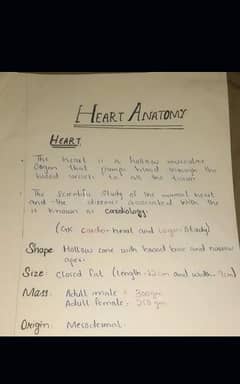 HEART ANATOMY
HEART
The heart is a hollow muscular
organ that pumps blood through the
blood vessels to all the tissue
The Scientific Study of the normal heart
and the diseases associated with the
is known as cardiology.
(GK cardio-heart and logos-Study)
Shape: Hollow cone with broad base and narrow
apex.
Size: closed fist (length-12cm and width-9cm)
Mass: Adult male = 300gm
Adult female = 250gm
Origin: Mesodermal.